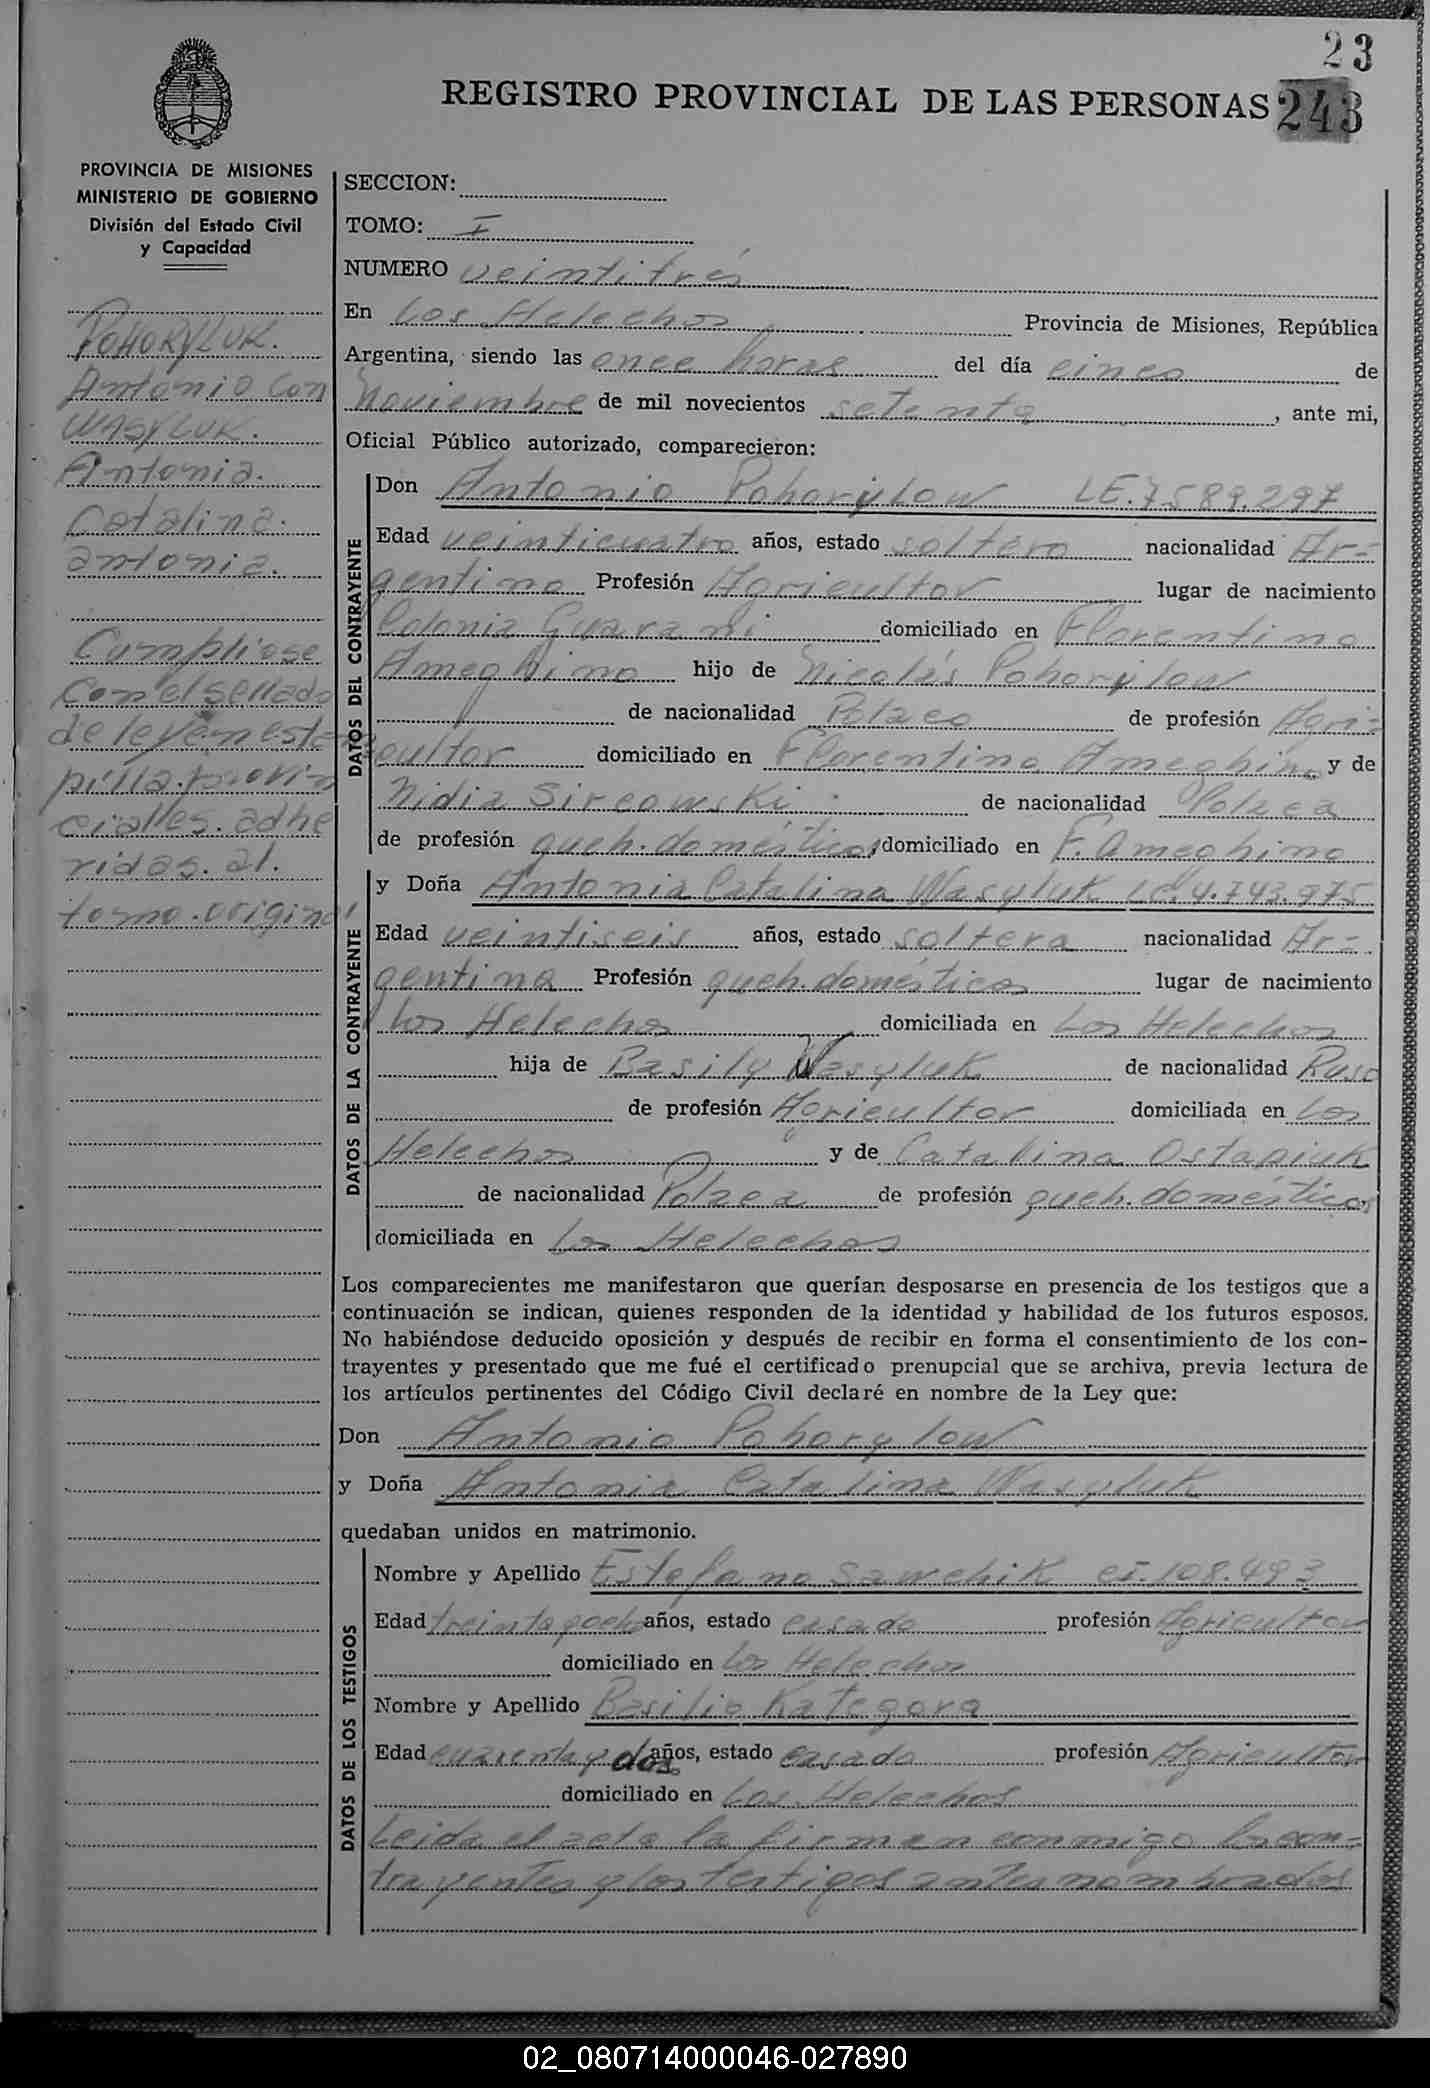 23
REGISTRO PROVINCIAL DE LAS PERSONAS 243
PROVINCIA DE MISIONES
MINISTERIO DE GOBIERNO
División del Estado Civil
y Capacidad
POHORYLUK.
Antonio Con
WASYLUK.
Antonia.
Catalina.
antonia.
Cumpliose
Con el sellado
de ley en estam
pilla. provin
cialles. adhe
ridas. al.
tomo. original
SECCION:
TOMO: I
NUMERO veintitrés
En Los Helechos, Provincia de Misiones, República
Argentina, siendo las once horas del día cinco de
Noviembre de mil novecientos setenta, ante mi,
Oficial Público autorizado, comparecieron:
DATOS DEL CONTRAYENTE
Don Antonio Pohorylow LE.7589.297
Edad veinticuatro años, estado soltero nacionalidad Ar=
gentino Profesión Agricultor lugar de nacimiento
Colonia Guarani domiciliado en Florentino
Ameghino hijo de Nicolás Pohorylow
de nacionalidad Polaco de profesión Agri=
cultor domiciliado en Florentino Ameghino y de
Nidia Sircowski de nacionalidad Polaca
de profesión queh. domésticos, domiciliado en F. Ameghino
DATOS DE LA CONTRAYENTE
y Doña Antonia Catalina Wasyluk LC.4.743.975
Edad veintiseis años, estado soltera nacionalidad Ar=
gentina Profesión queh. domésticos lugar de nacimiento
Los Helechos domiciliada en Los Helechos
hija de Basily Wasyluk de nacionalidad Ruso
de profesión Agricultor domiciliada en Los
Helechos y de Catalina Ostapiuk
de nacionalidad Polaca de profesión queh. domésticos
domiciliada en Los Helechos
Los comparecientes me manifestaron que querían desposarse en presencia de los testigos que a
continuación se indican, quienes responden de la identidad y habilidad de los futuros esposos.
No habiéndose deducido oposición y después de recibir en forma el consentimiento de los con-
trayentes y presentado que me fué el certificado prenupcial que se archiva, previa lectura de
los artículos pertinentes del Código Civil declaré en nombre de la Ley que:
Don Antonio Pohorylow
y Doña Antonia Catalina Wasyluk
quedaban unidos en matrimonio.
DATOS DE LOS TESTIGOS
Nombre y Apellido Estefano Sawchik CI. 108.493
Edad treinta y ocho años, estado casado profesión Agricultor
domiciliado en Los Helechos
Nombre y Apellido Basilio Kategora
Edad cuarenta y dos años, estado casado profesión Agricultor
domiciliado en Los Helechos
Leida el acta la firman conmigo los con-
trayentes y los testigos antes nombrados
02_080714000046-027890